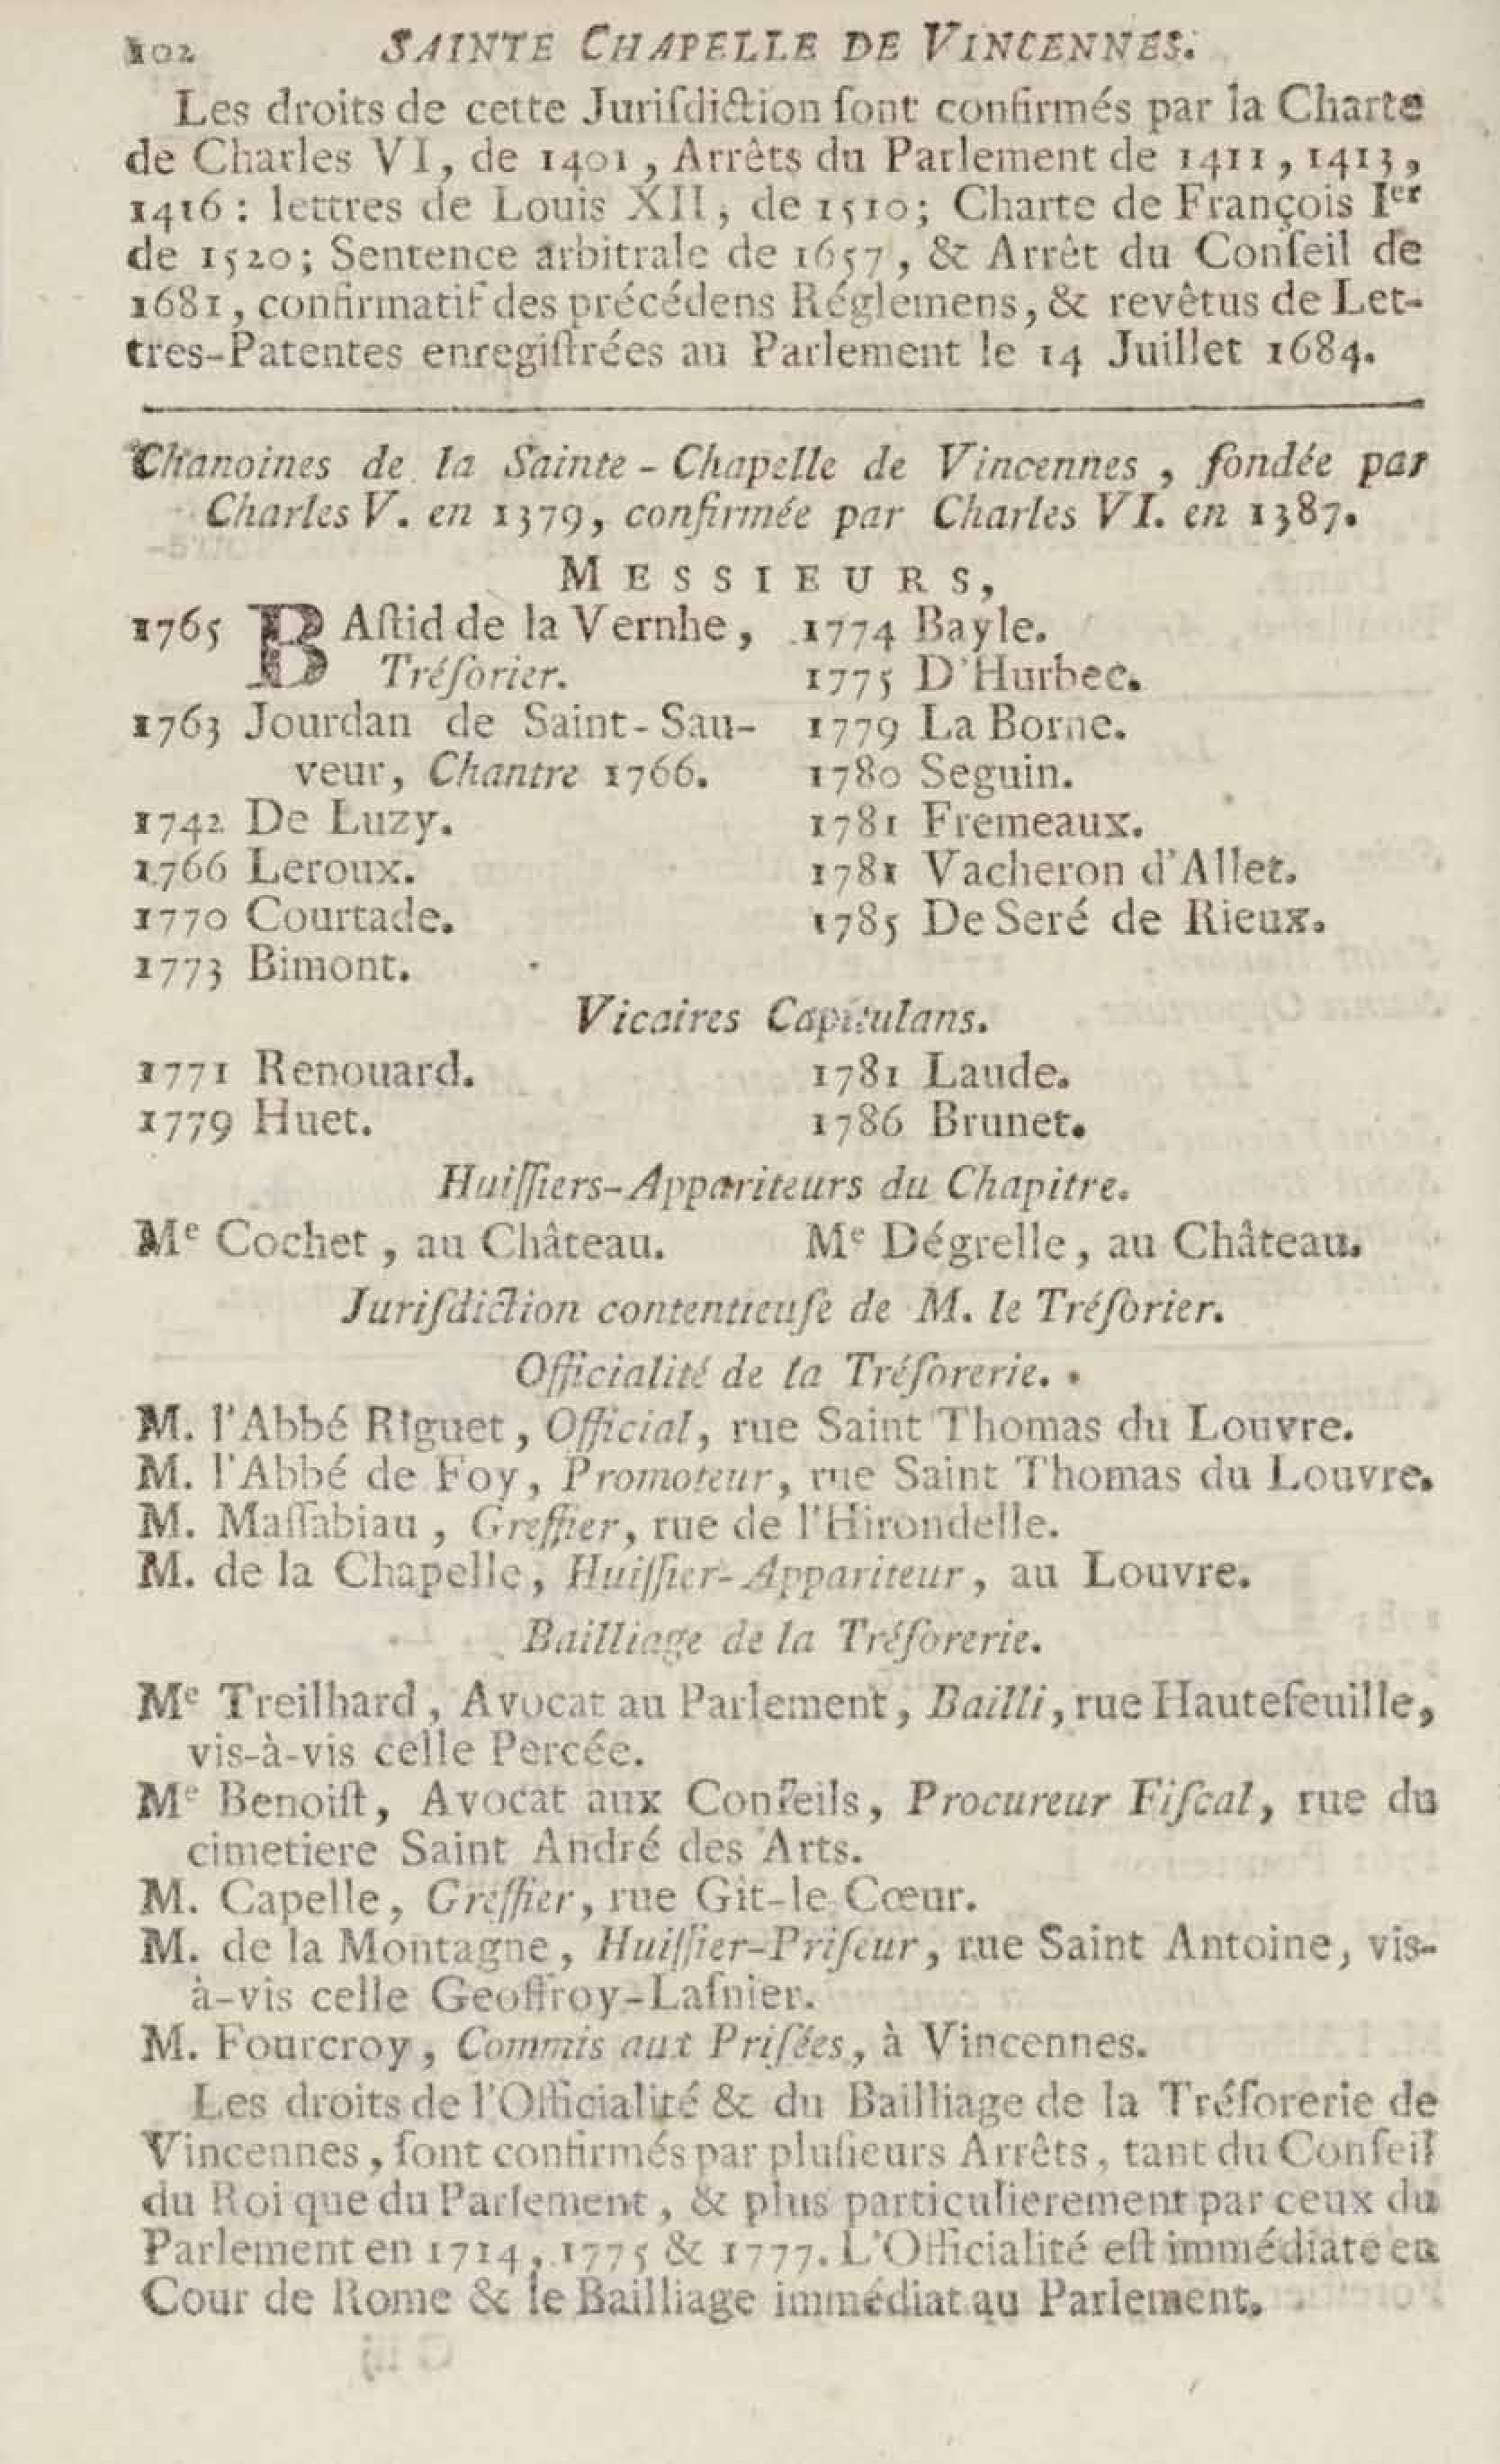 102 SAINTE CHAPELLE DE VINCENNES.
Les droits de cette Juriſdiction ſont confirmés par la Charte
de Charles VI, de 1401, Arrêts du Parlement de 1411, 1413,
1416 : lettres de Louis XII, de 1510; Charte de François Ier
de 1520; Sentence arbitrale de 1657, & Arrêt du Conſeil de
1681, confirmatif des précédens Réglemens, & revêtus de Let-
tres-Patentes enregiſtrées au Parlement le 14 Juillet 1684.
Chanoines de la Sainte-Chapelle de Vincennes, fondée par
Charles V. en 1379, confirmée par Charles VI. en 1387.
MESSIEURS,
1765 BAſtid de la Vernhe,
Tréſorier.
1763 Jourdan de Saint-Sau-
veur, Chantre 1766.
1742 De Luzy.
1766 Leroux.
1770 Courtade.
1773 Bimont.
1774 Bayle.
1775 D'Hurbec.
1779 La Borne.
1780 Seguin.
1781 Fremeaux.
1781 Vacheron d'Allet.
1785 De Seré de Rieux.
Vicaires Capitulans.
1771 Renouard.
1779 Huet.
1781 Laude.
1786 Brunet.
Huiſſiers-Appariteurs du Chapitre.
Me Cochet, au Château. Me Dégrelle, au Château.
Juriſdiction contentieuſe de M. le Tréſorier.
Officialité de la Tréſorerie.
M. l'Abbé Riguet, Official, rue Saint Thomas du Louvre.
M. l'Abbé de Foy, Promoteur, rue Saint Thomas du Louvre.
M. Maſſabiau, Greffier, rue de l'Hirondelle.
M. de la Chapelle, Huiſſier-Appariteur, au Louvre.
Bailliage de la Tréſorerie.
Me Treilhard, Avocat au Parlement, Bailli, rue Hautefeuille,
vis-à-vis celle Percée.
Me Benoiſt, Avocat aux Conſeils, Procureur Fiſcal, rue du
cimetiere Saint André des Arts.
M. Capelle, Greffier, rue Gît-le-Cœur.
M. de la Montagne, Huiſſier-Priſeur, rue Saint Antoine, vis-
à-vis celle Geoffroy-Laſnier.
M. Fourcroy, Commis aux Priſées, à Vincennes.
Les droits de l'Officialité & du Bailliage de la Tréſorerie de
Vincennes, ſont confirmés par pluſieurs Arrêts, tant du Conſeil
du Roi que du Parlement, & plus particulierement par ceux du
Parlement en 1714, 1775 & 1777. L'Officialité eſt immédiate en
Cour de Rome & le Bailliage immédiat au Parlement.